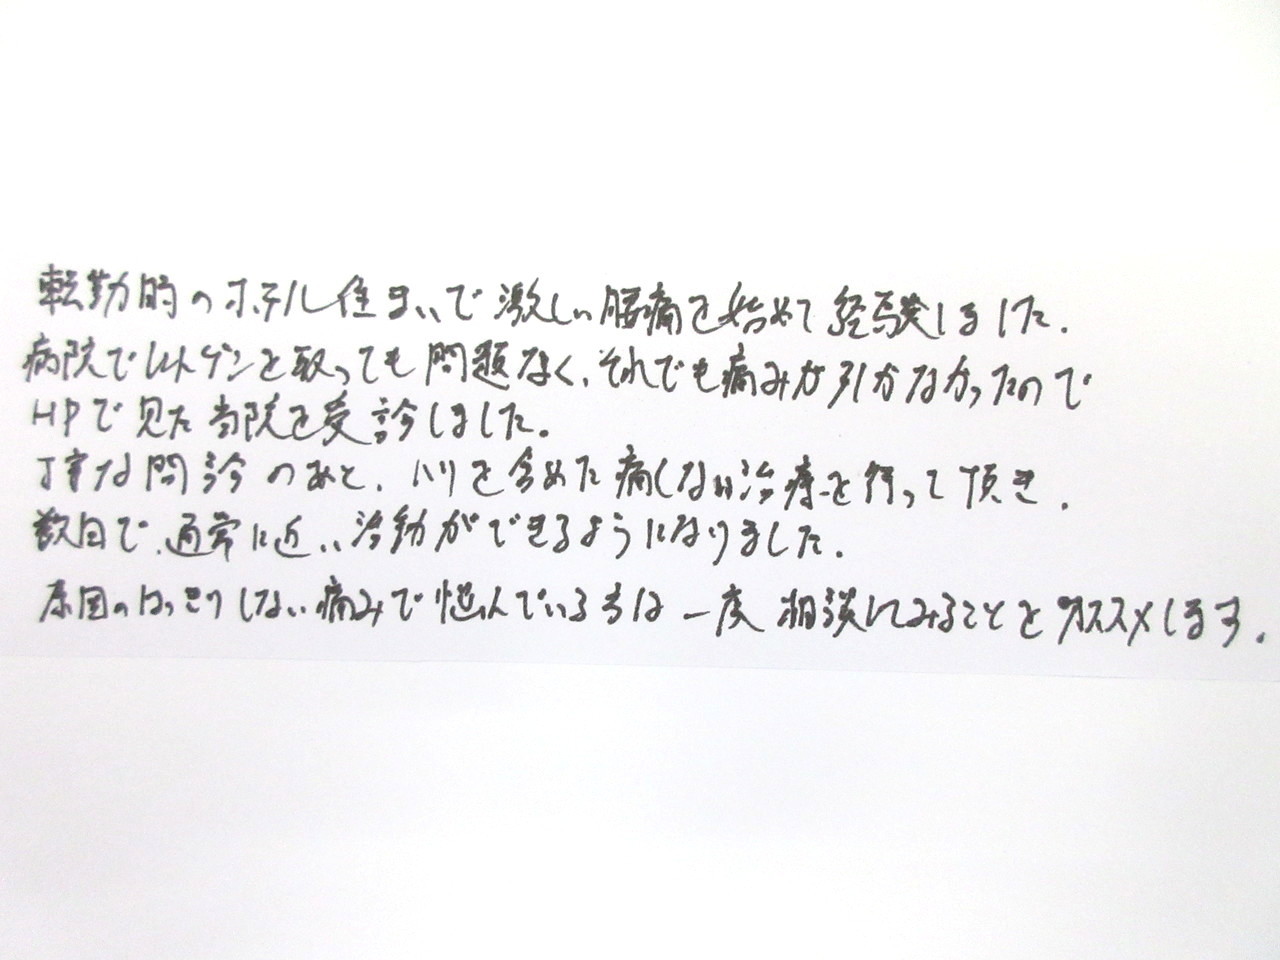 転勤時のホテル住まいで激しい腰痛を始めて経験しました。
病院でレントゲンを取っても問題なく、それでも痛みが引かなかったので
HPで見た当院を受診しました。
丁寧な問診のあと、ハリを含めた痛くない治療を行って頂き、
数日で、通常に近い活動ができるようになりました。
原因のはっきりしない痛みで悩んでいる方は一度相談してみることをオススメします。